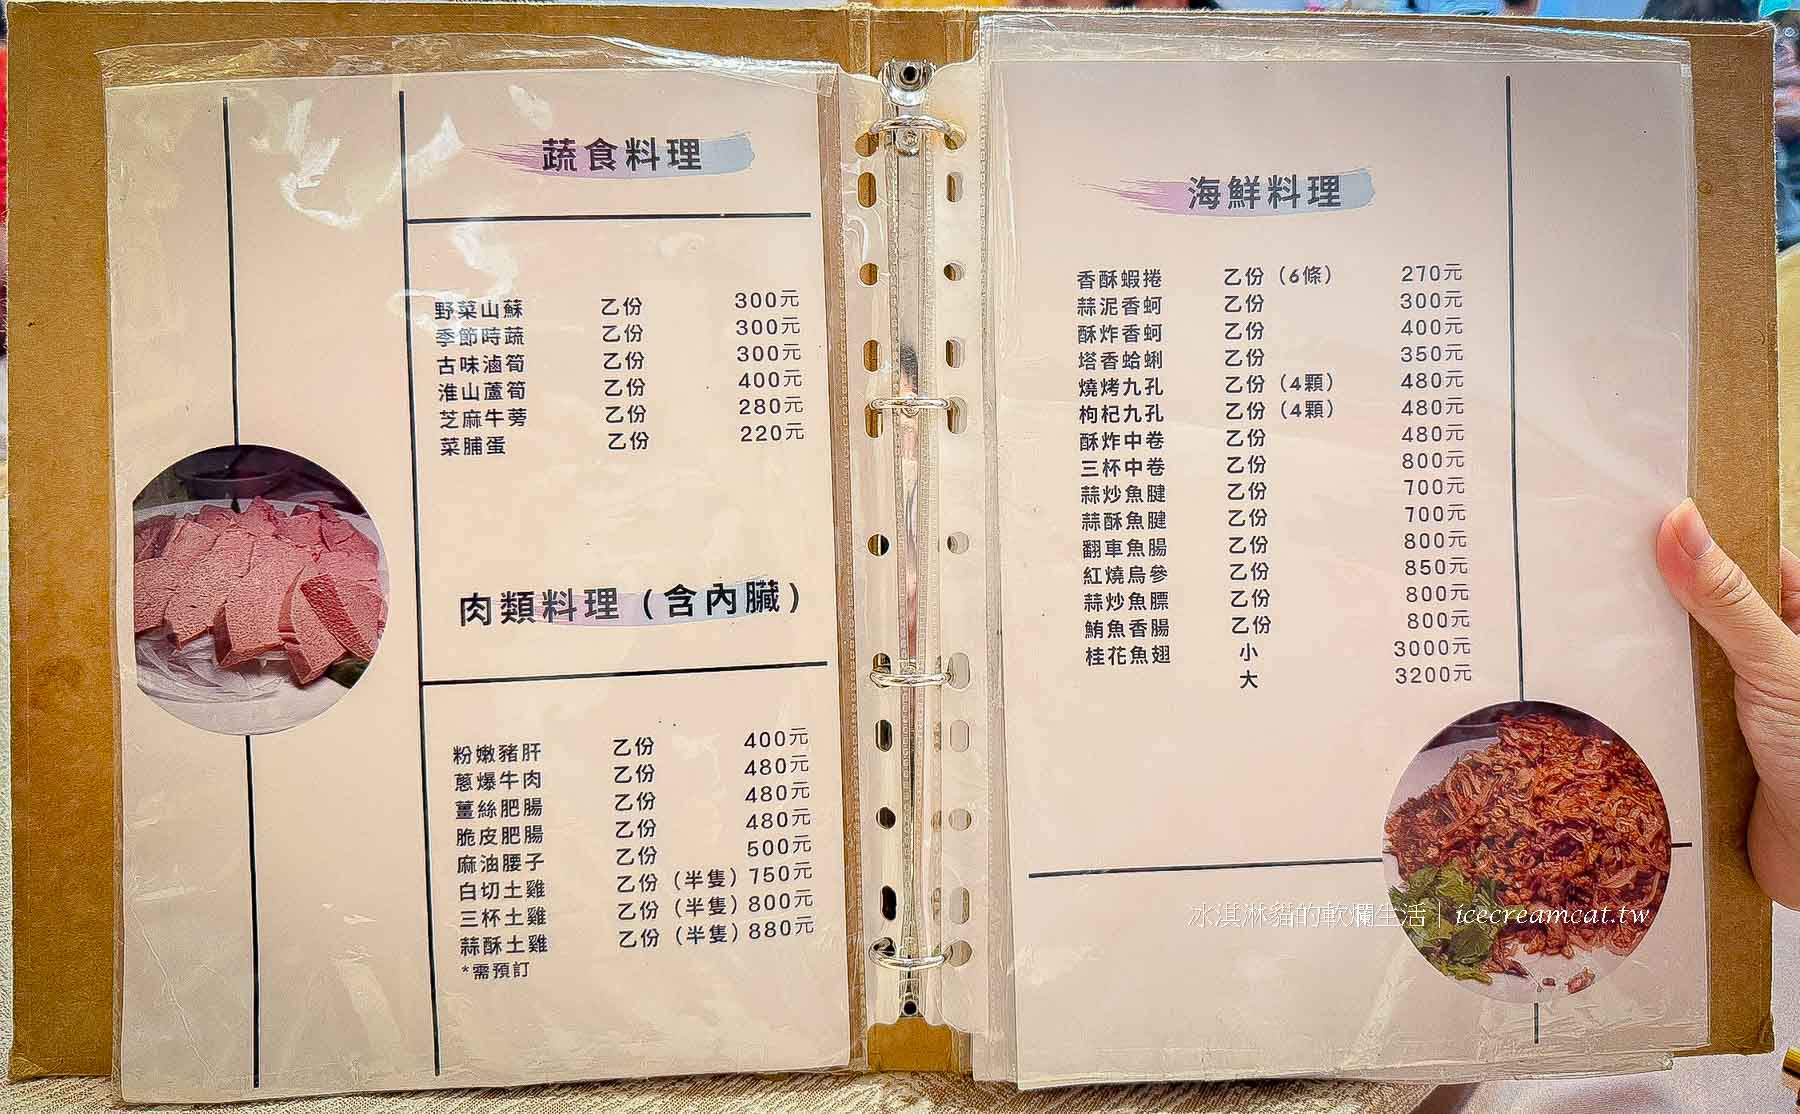 蔬食料理
野菜山蘇 乙份 300元
季節時蔬 乙份 300元
古味滷筍 乙份 300元
淮山蘆筍 乙份 400元
芝麻牛蒡 乙份 280元
菜脯蛋 乙份 220元
肉類料理（含內臟）
粉嫩豬肝 乙份 400元
蔥爆牛肉 乙份 480元
薑絲肥腸 乙份 480元
脆皮肥腸 乙份 480元
麻油腰子 乙份 500元
白切土雞 乙份（半隻）750元
三杯土雞 乙份（半隻）800元
蒜酥土雞 乙份（半隻）880元
*需預訂
海鮮料理
香酥蝦捲 乙份（6條） 270元
蒜泥香蚵 乙份 300元
酥炸香蚵 乙份 400元
塔香蛤蜊 乙份 350元
燒烤九孔 乙份（4顆） 480元
枸杞九孔 乙份（4顆） 480元
酥炸中卷 乙份 480元
三杯中卷 乙份 800元
蒜炒魚腱 乙份 700元
蒜酥魚腱 乙份 700元
翻車魚腸 乙份 800元
紅燒烏參 乙份 850元
蒜炒魚膘 乙份 800元
鮪魚香腸 乙份 800元
桂花魚翅 小 3000元
大 3200元
冰淇淋貓的軟爛生活｜icecreamcat.tw